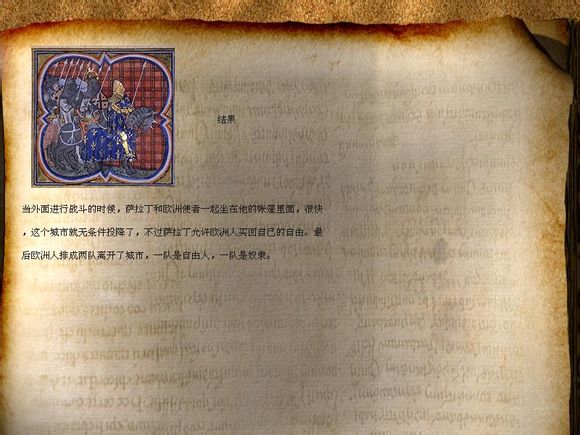 结果
当外面进行战斗的时候，萨拉丁和欧洲使者一起坐在他的帐篷里面，很快
，这个城市就无条件投降了，不过萨拉丁允许欧洲人买回自己的自由。最
后欧洲人排成两队离开了城市，一队是自由人，一队是奴隶。